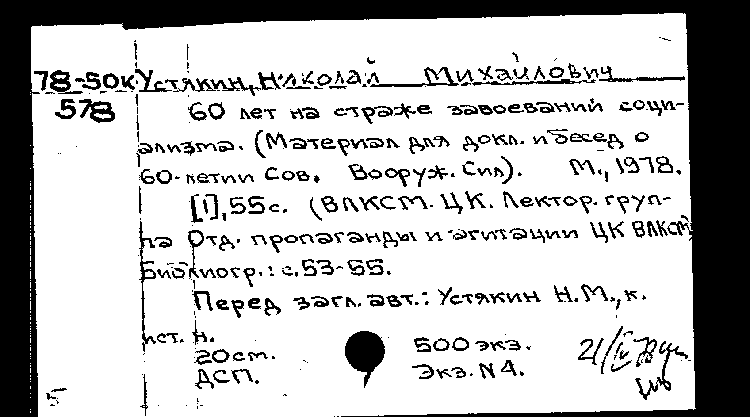 78-50к Устякин, Николай Михайлович
578 60 лет на страже завоеваний соци-
ализма. (Материал для докл. и бесед о
60-летии Сов. Вооруж. Сил). М., 1978.
[1], 55 с. (ВЛКСМ. ЦК. Лектор. груп-
па Отд. пропаганды и агитации ЦК ВЛКСМ)
Библиогр.: с. 53-55.
Перед загл. авт.: Устякин Н.М., к.
ист. н.
20 см. 500 экз.
ДСП. Экз. N 4.
21/IV 78
5